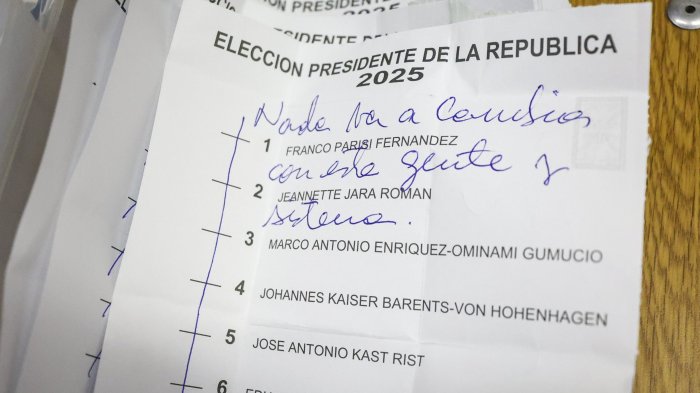 CION PRESIDE
2025
ELECCION PRESIDENTE DE LA REPUBLICA
2025
Nada va a cambiar
1 FRANCO PARISI FERNANDEZ
con esta gente y
2 JEANNETTE JARA ROMAN
sistema.
3 MARCO ANTONIO ENRIQUEZ-OMINAMI GUMUCIO
4 JOHANNES KAISER BARENTS-VON HOHENHAGEN
5 JOSE ANTONIO KAST RIST
6